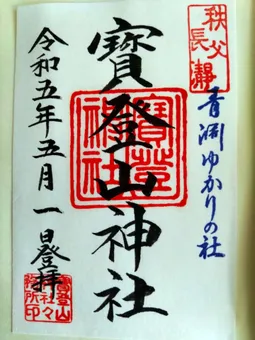 秩父
長瀞
青淵ゆかりの社
寶登山神社
寶登山
神社
令和五年五月一日登拝
寶登山
神社々
務所印